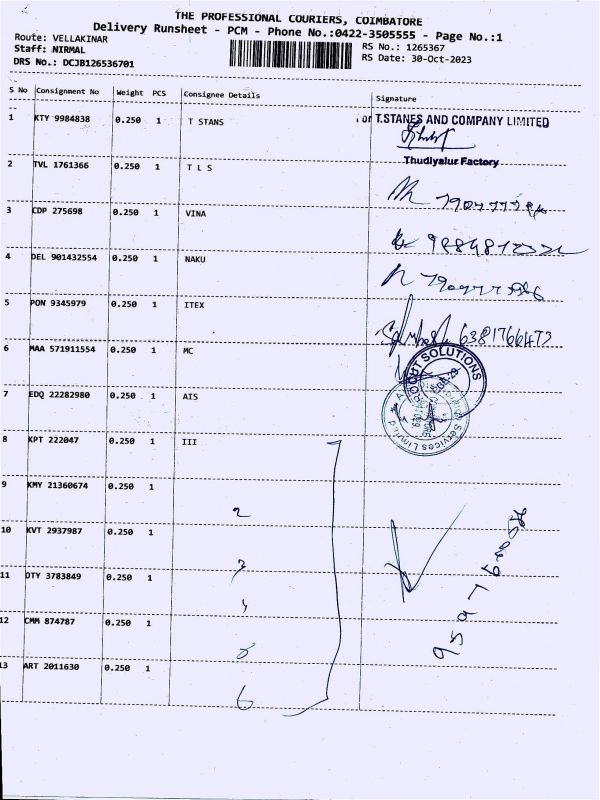 THE PROFESSIONAL COURIERS, COIMBATORE
Delivery Runsheet - PCM - Phone No.:0422-3505555 - Page No.:1
Route: VELLAKINAR
RS No.: 1265367
Staff: NIRMAL
RS Date: 30-Oct-2023
DRS No.: DCJB126536701
S No Consignment No Weight PCS Consignee Details Signature
1 KTY 9984838 0.250 1 T STANS
For T.STANES AND COMPANY LIMITED
Thudiyalur Factory
2 TVL 1761366 0.250 1 T L S
3 CDP 275698 0.250 1 VINA
4 DEL 901432554 0.250 1 NAKU
5 PON 9345979 0.250 1 ITEX
6381766473
6 MAA 571911554 0.250 1 MC
SOLUTIONS
7 EDQ 22282980 0.250 1 AIS
Services Limited
8 KPT 222047 0.250 1 III
9 KMY 21360674 0.250 1
2
10 KVT 2937987 0.250 1
3
11 DTY 3783849 0.250 1
4
12 CMM 874787 0.250 1
5
13 ART 2011630 0.250 1
6